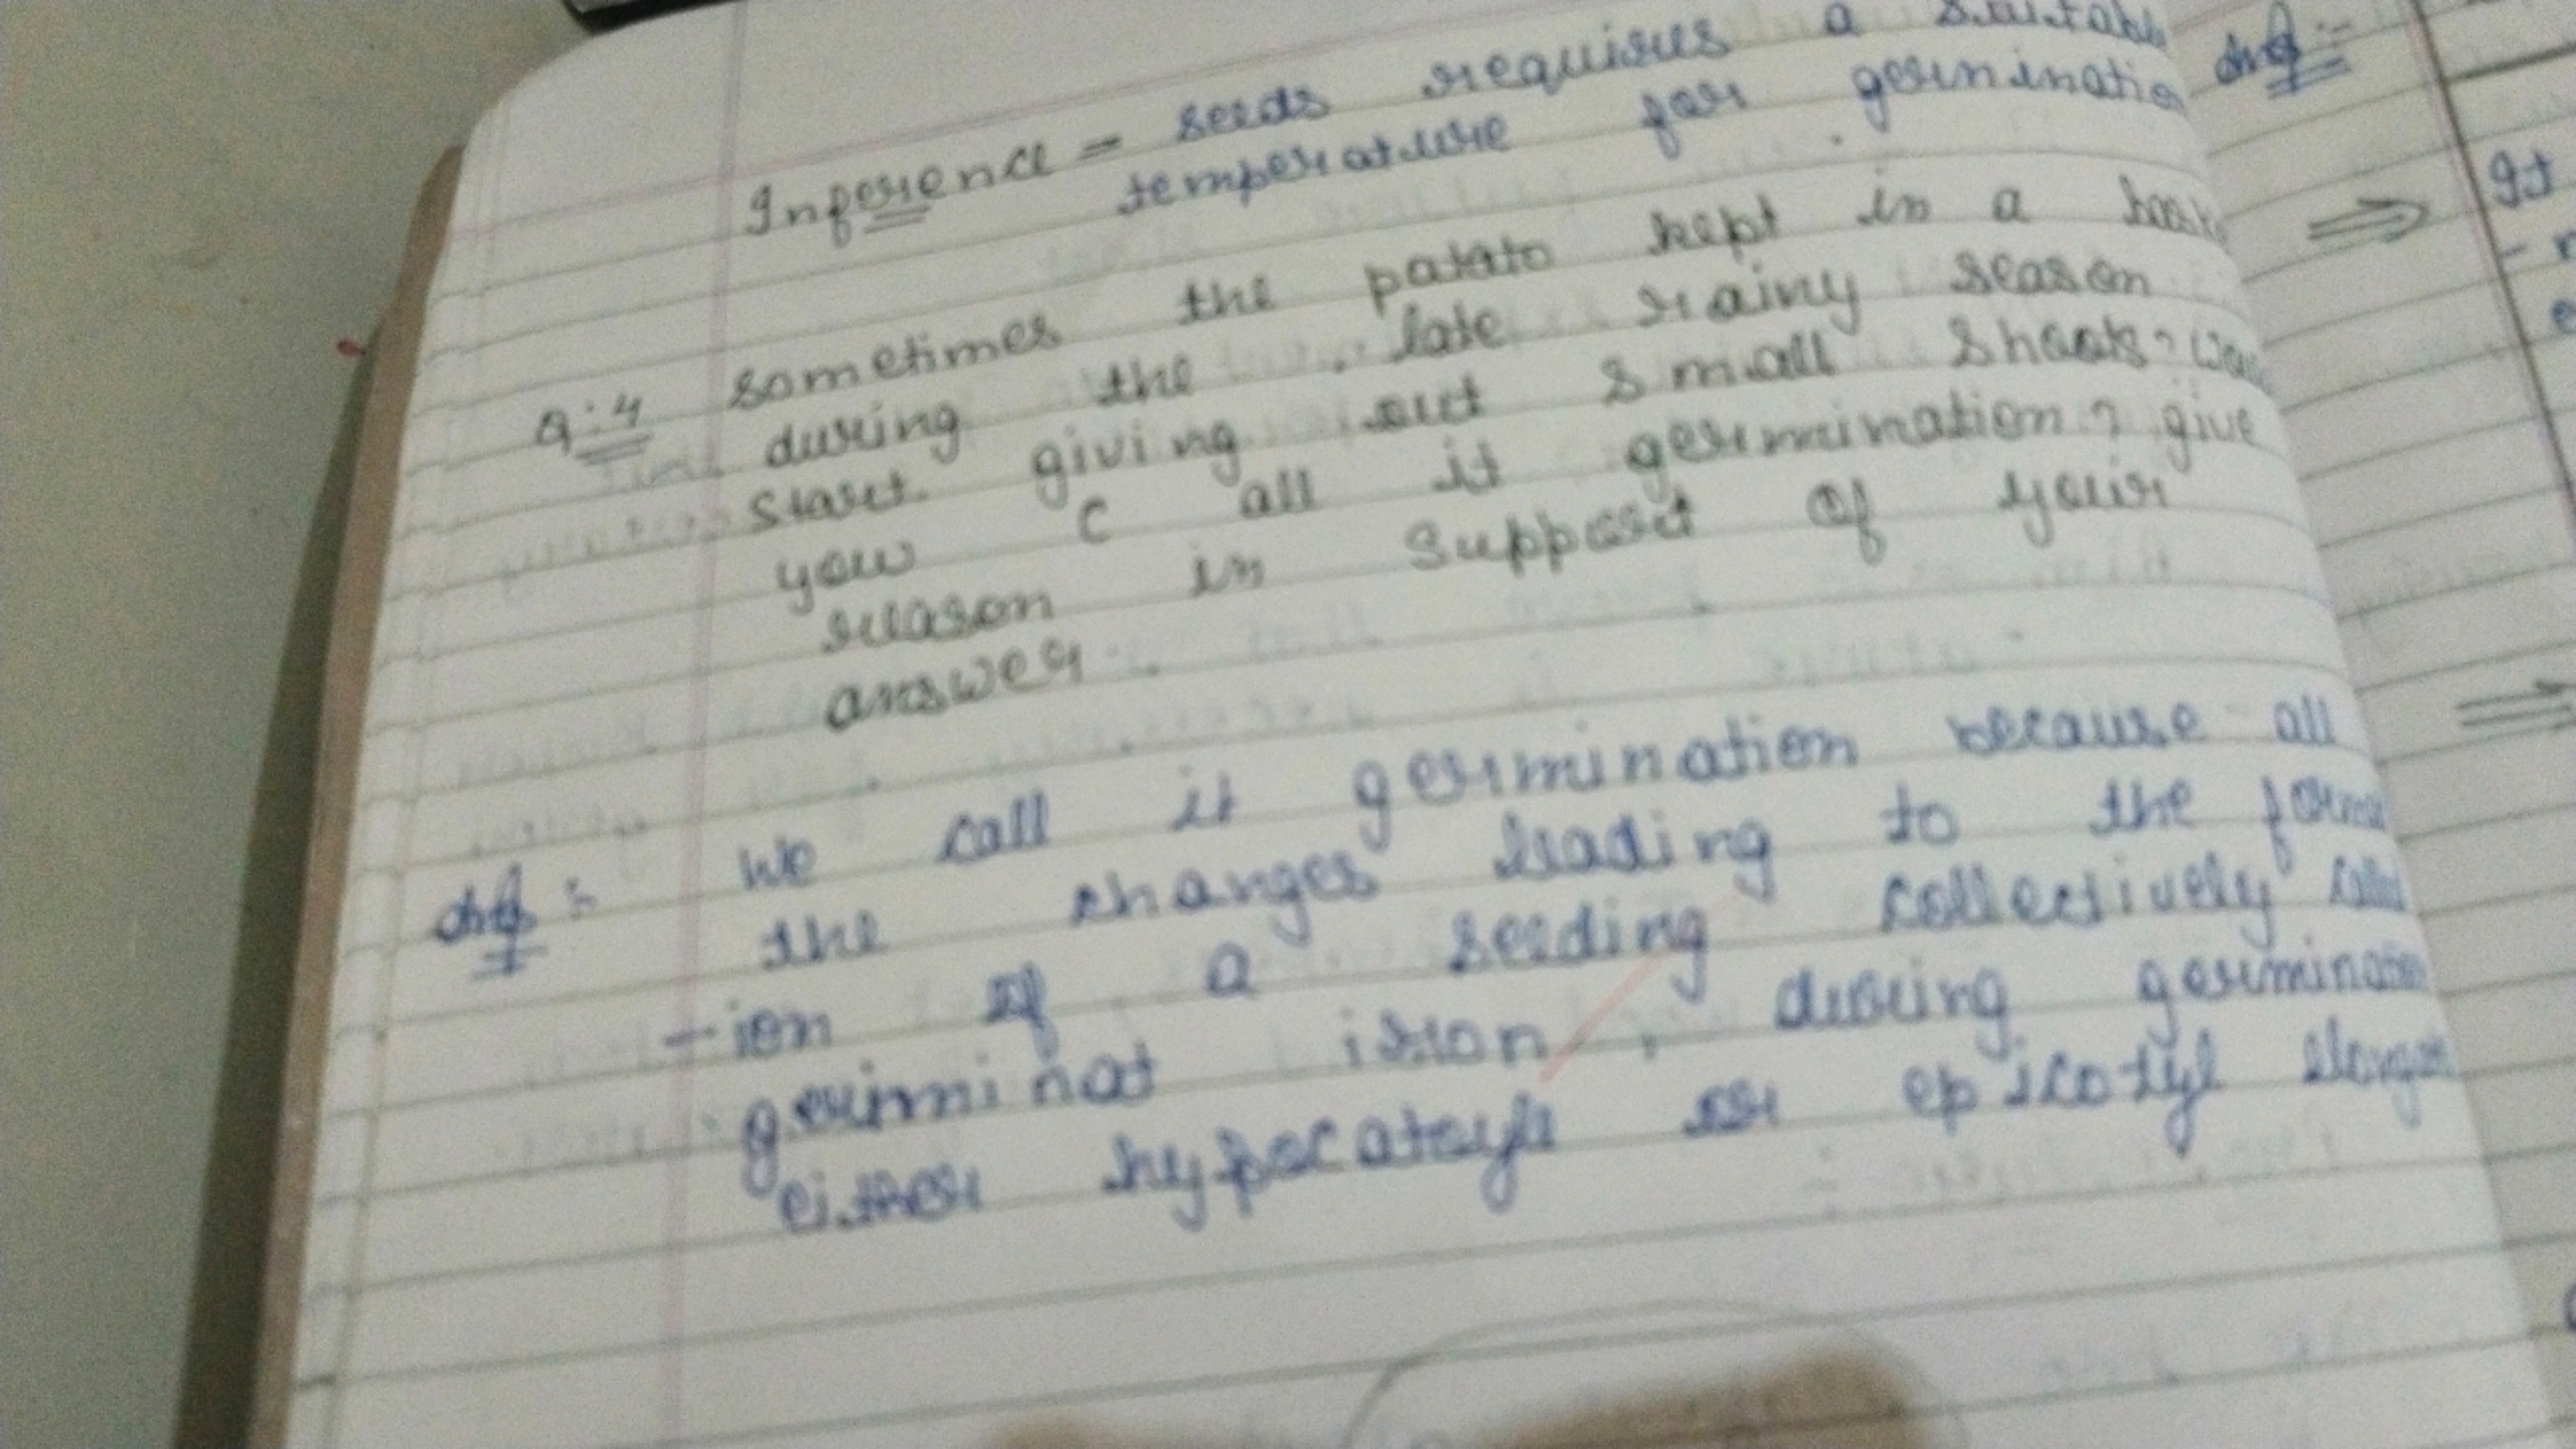 Inference = seeds requires a suitable
temperature for germination
.
Q:4 sometimes the patato kept in a
during the late rainy season
start giving out small shoots?
you c all it germination? give
reason in support of your
answer.
Ans:- We call it germination because all
the changes leading to the format
-ion of a seeding collectively called
germinat ision, during germination
either hypocatoyle or epicotyl elongat
Ans:-
⇒ It